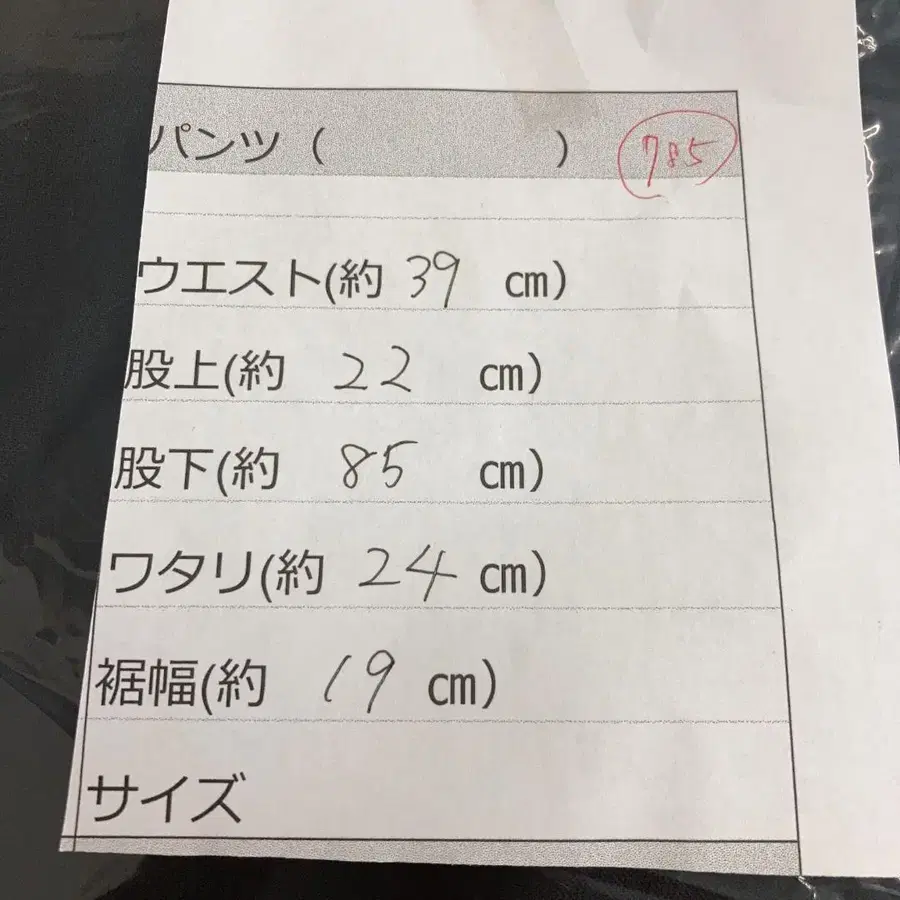 パンツ ( ) 785
ウエスト(約 39 cm)
股上(約 22 cm)
股下(約 85 cm)
ワタリ(約 24 cm)
裾幅(約 19 cm)
サイズ